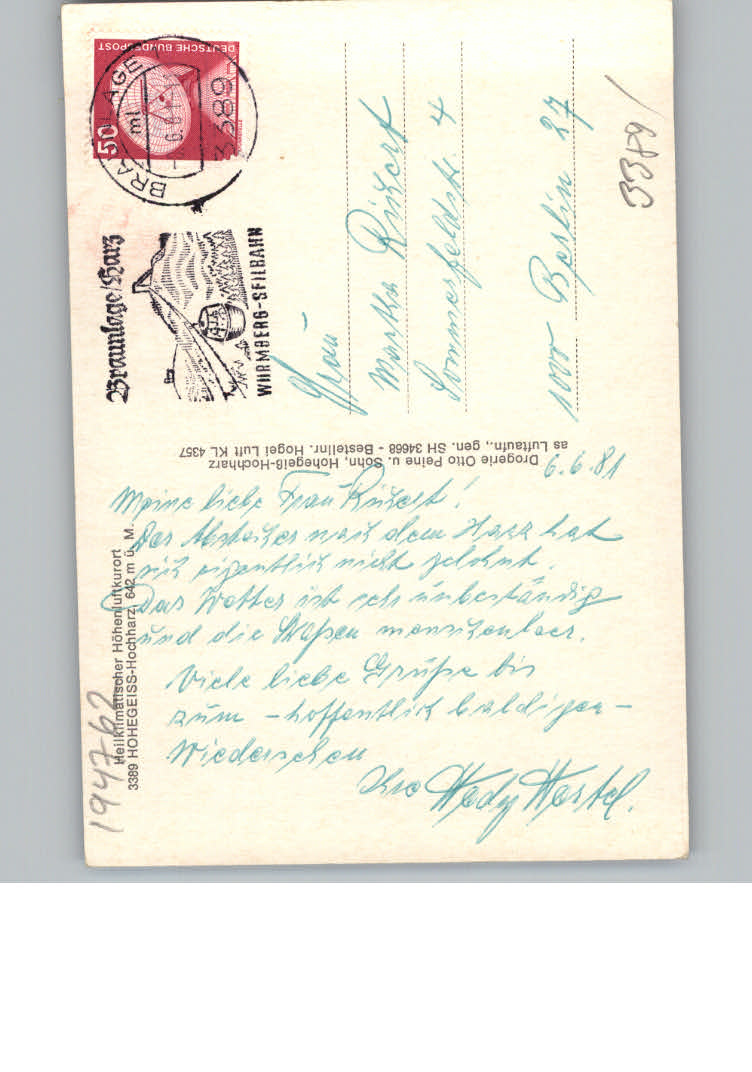 DEUTSCHE BUNDESPOST
50
BRAUNLAGE 1
ml
3389
Braunlage/Harz
WURMBERG-SEILBAHN
Frau
Martha
Sommerfeldstr. 4
1000 Berlin 27
3389/
Drogerie Otto Peine u. Sohn, Hohegeiß-Hochharz
as Luftaufn., gen. SH 34668 - Bestellnr. Hogei Luft KL 4357
Heilklimatischer Höhenluftkurort
3389 HOHEGEISS-Hochharz, 642 m ü. M.
194762
6.6.81
Meine liebe Frau !
Der Abstecher nach dem Harz hat
sich eigentlich nicht gelohnt.
Das Wetter ist sehr unbeständig
und die Straßen menschenleer.
Viele liebe Grüße bis
zum - hoffentlich baldigen -
Wiedersehen
Ihre